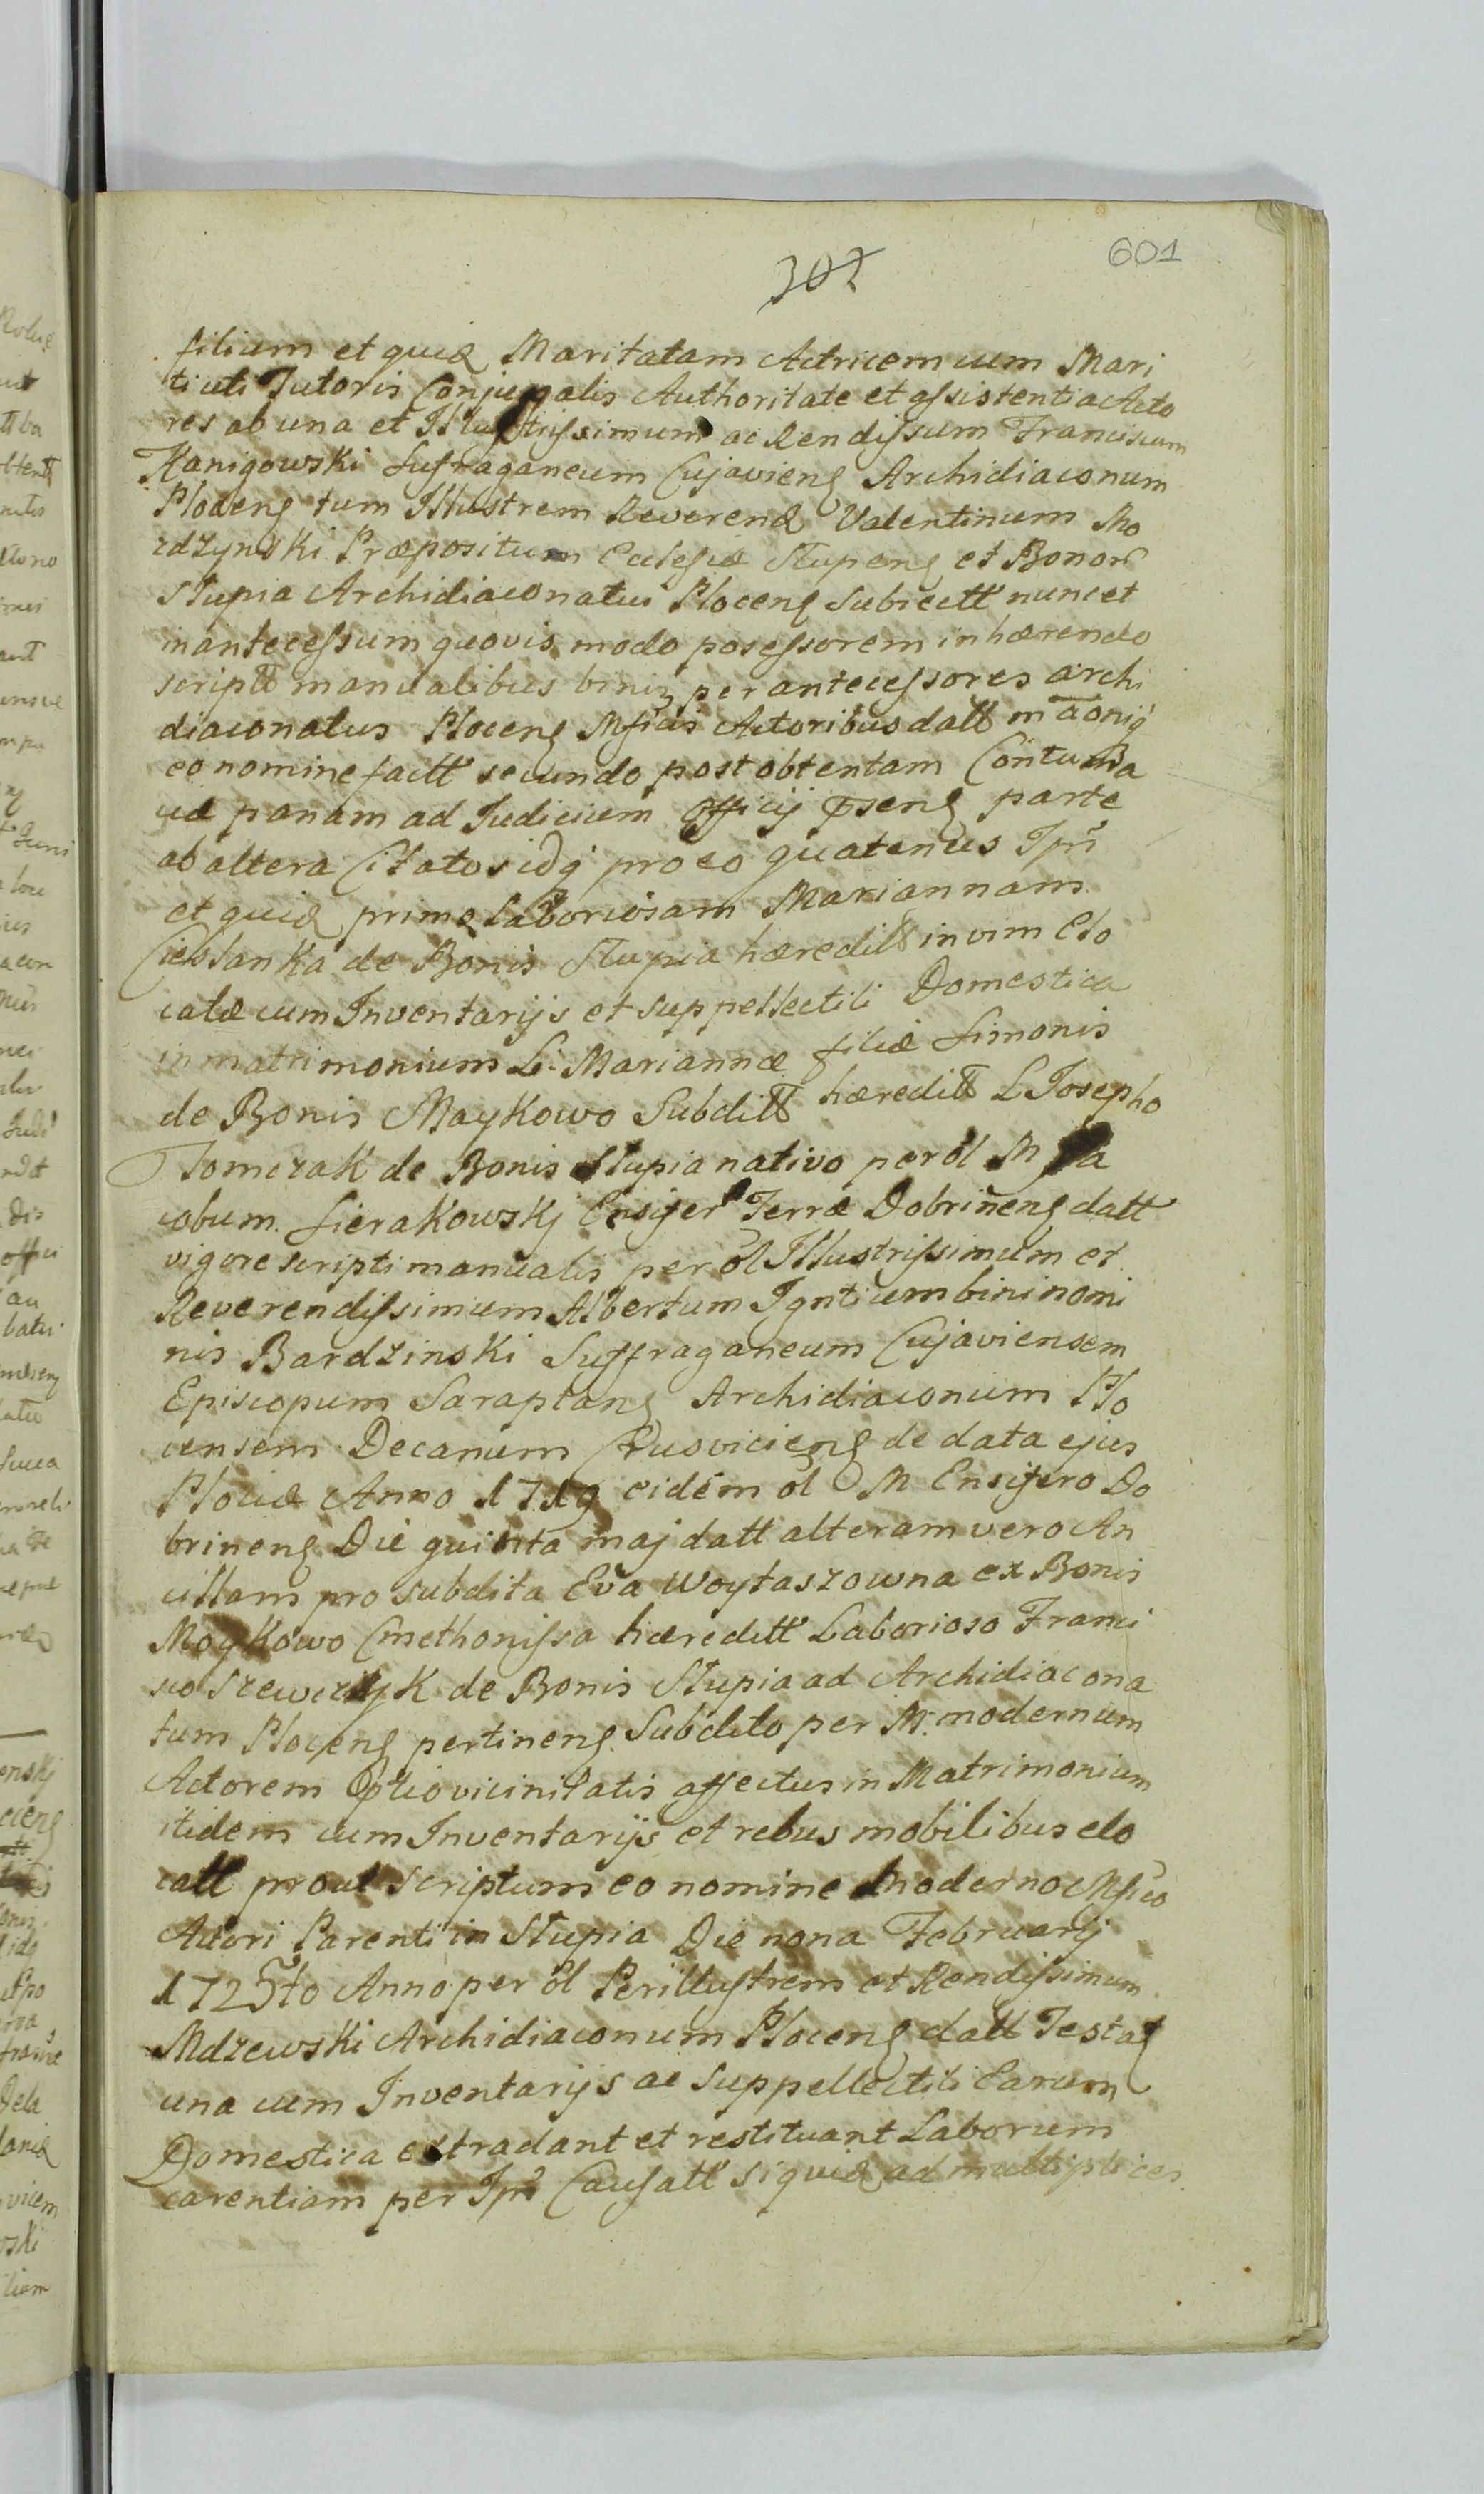 601
301
filium et quid Maritatam Actricem cum Mari
ti uti Tutoris Conjugalis Authoritate et assistentia Acto
res ab una et Illustrissimum ac Rendissum Franciscum
Kanigowski Sufraganeum Cujavieng Archidiaconum
Ploceng tum Illustrem Reverend Valentinum Mo
rdzynski Præpositum Ecclesiæ Slupeng et Bonor
Slupia Archidiaconatui Ploceng Subiectt nunc et
in antecessum quovis modo posessorem inhærendo
scriptt manualibus binis per antecessores archi
diaconatus Ploceng Mficis Actoribus datt in aoniq
eo nomine factt secundo post obtentam Contuma
ciæ pœnam ad Iudicium Officij pseng parte
ab altera Citatos idq pro eo quatenus Ipsi
et quid primo laboriosam Mariannam
Cieslanka de Bonis Slupia hæreditt in vim Elo
catæ cum Inventarijs et suppellectili Domestica
in matrimonium L. Mariannæ filiæ Simonis
de Bonis Maykowo Subditt hæreditt L Josepho
Tomczak de Bonis Slupia nativo per ol M Ja
cobum Sierakowskj Ensiger Terræ Dobrineng datt
vigore scripti manualis per ol Illustrissimum et
Reverendissimum Albertum Igntium bininomi
nis Bardzinski Suffraganeum Cujaviensem
Episcopum Saraptang Archidiaconum Plo
censem Decanum Crusvicieng de data ejus
Plociæ Anno 1719 eidem ol M Ensifero Do
brineng Die quinta maj datt alteram vero An
cillam pro subdita Eva Woytaszowna ex Bonis
Moykowo Cmethonissa hæreditt Laborioso Franci
sco Szewczyk de Bonis Slupia ad Archidiacona
tum Ploceng pertineng Subdito per M. modernum
Actorem optio vicinitatis affectus in Matrimonium
itidem cum Inventarijs et rebus mobilibus elo
catt prout Scriptum eo nomine moderno Mfico
Actori Parenti in Slupia Die nona Februarij
1725to Anno per ol Perillustrem et Rendissimum
Mdzewski Archidiaconum Ploceng datt Testat
una cum Inventarijs ac Suppellectili Earum
Domestica extradant et restituant Laborum
carentiam per Ipsos Causatt siquid ad multiplices